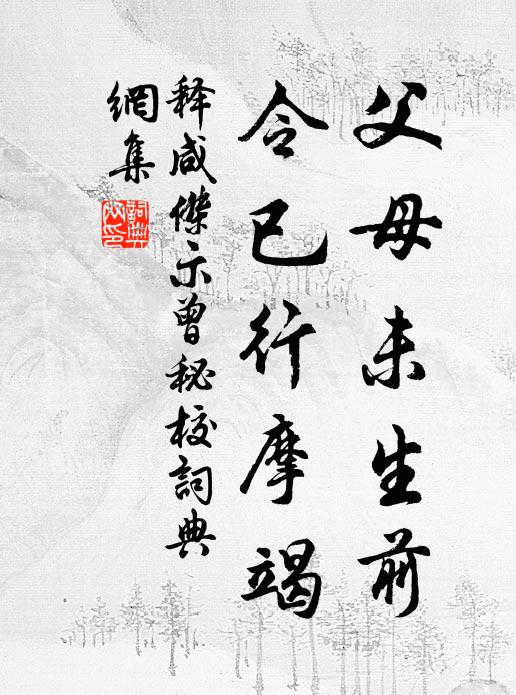 父母未生前
令已行摩竭
释咸傑示曾秘校詞典
網集
詞典網印